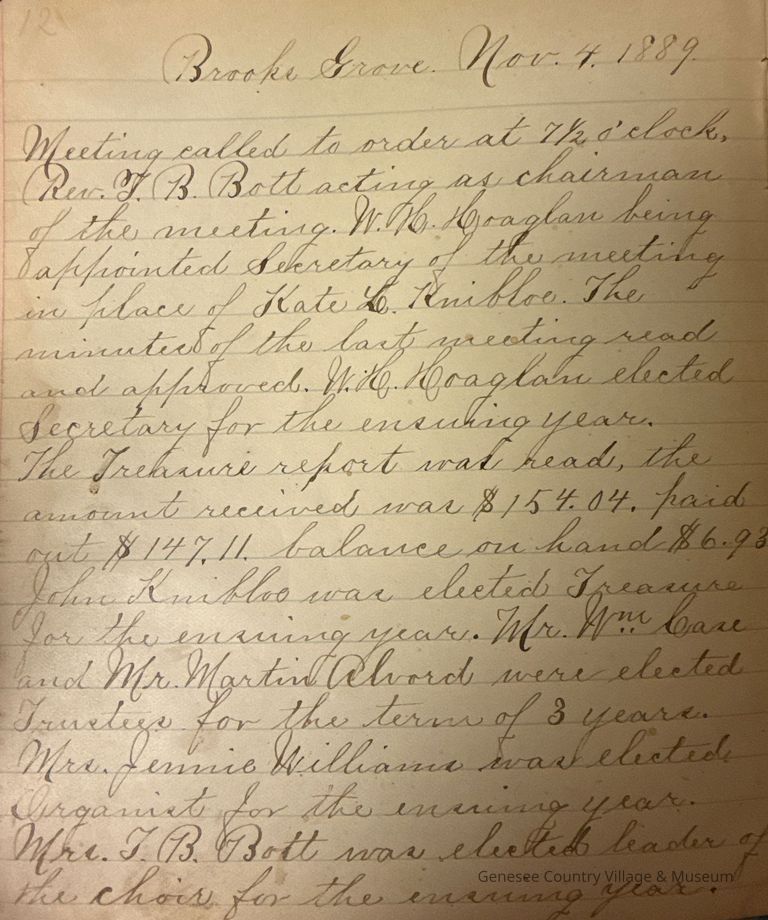 12
Brooks Grove. Nov. 4. 1889.
Meeting called to order at 7½ o'clock,
Rev. T. B. Bott acting as chairman
of the meeting. W. H. Hoaglan being
appointed Secretary of the meeting
in place of Kate L. Knibloe. The
minutes of the last meeting read
and approved. W. H. Hoaglan elected
Secretary for the ensuing year.
The Treasure report was read, the
amount received was $154.04. paid
out $147.11. balance on hand $6.93
John Knibloe was elected Treasure
for the ensuing year. Mr. Wm. Case
and Mr. Martin Alvord were elected
Trustees for the term of 3 years.
Mrs. Jennie Williams was elected
Organist for the ensuing year.
Mrs. T. B. Bott was elected leader of
the choir for the ensuing year.
Genesee Country Village & Museum